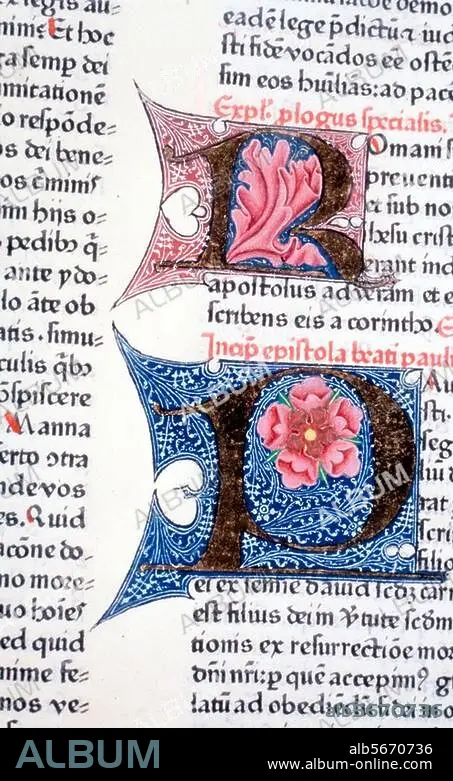 legis au-
nime Et hoc
ga semp dei
mmitationē
o respōde-
s dei bene-
os c̄minis
um hijs o-
pedibꝰ q̄-
ante ydo-
lo āte ob
atis. simu-
culis q̄bꝰ
ōspiscere
Manna
erto ɔtra
nde vos
es. Quid
acōne do-
no more-
uo hoīes
ed quid
nime fe-
nos ve-
eadē lege p̄dictur iud
sti fidē vocādos eē ostē
sim eos hūilias: ad pacē
Expl. plogus specialis.
Romani s
preuenti
et sub no
Ihesu crist
erant ind
apostolus ad veram et e
scribens eis a corintho.
Incip epistola beati pauli
PAu
sti.
seg
rat
scri
filio
ei ex semie dauid scdꝫ carn
est filius dei in v̄tute scdm
tionis ex resurrectiōe mor
dn̄i nr̄i: p quē accepimꝰ
latū ad obediendū
ALBUM
alb5670736
www.album-online.com